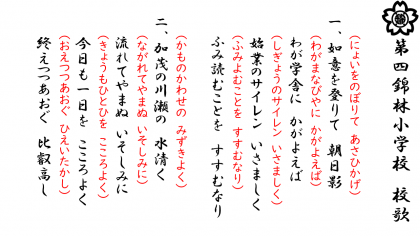 第四錦林小学校　校歌
(にょいをのぼりて あさひかげ)
一、如意を登りて　朝日影
(わがまなびやに かがよえば)
わが学舎に　かがよえば
(しぎょうのサイレン いさましく)
始業のサイレン いさましく
(ふみよむことを すすむなり)
ふみ読むことを　すすむなり
(かものかわせの みずきよく)
二、加茂の川瀬の　水清く
(ながれてやまぬ いそしみに)
流れてやまぬ　いそしみに
(きょうもひとひを こころよく)
今日も一日を　こころよく
(おえつつあおぐ ひえいたかし)
終えつつあおぐ　比叡高し